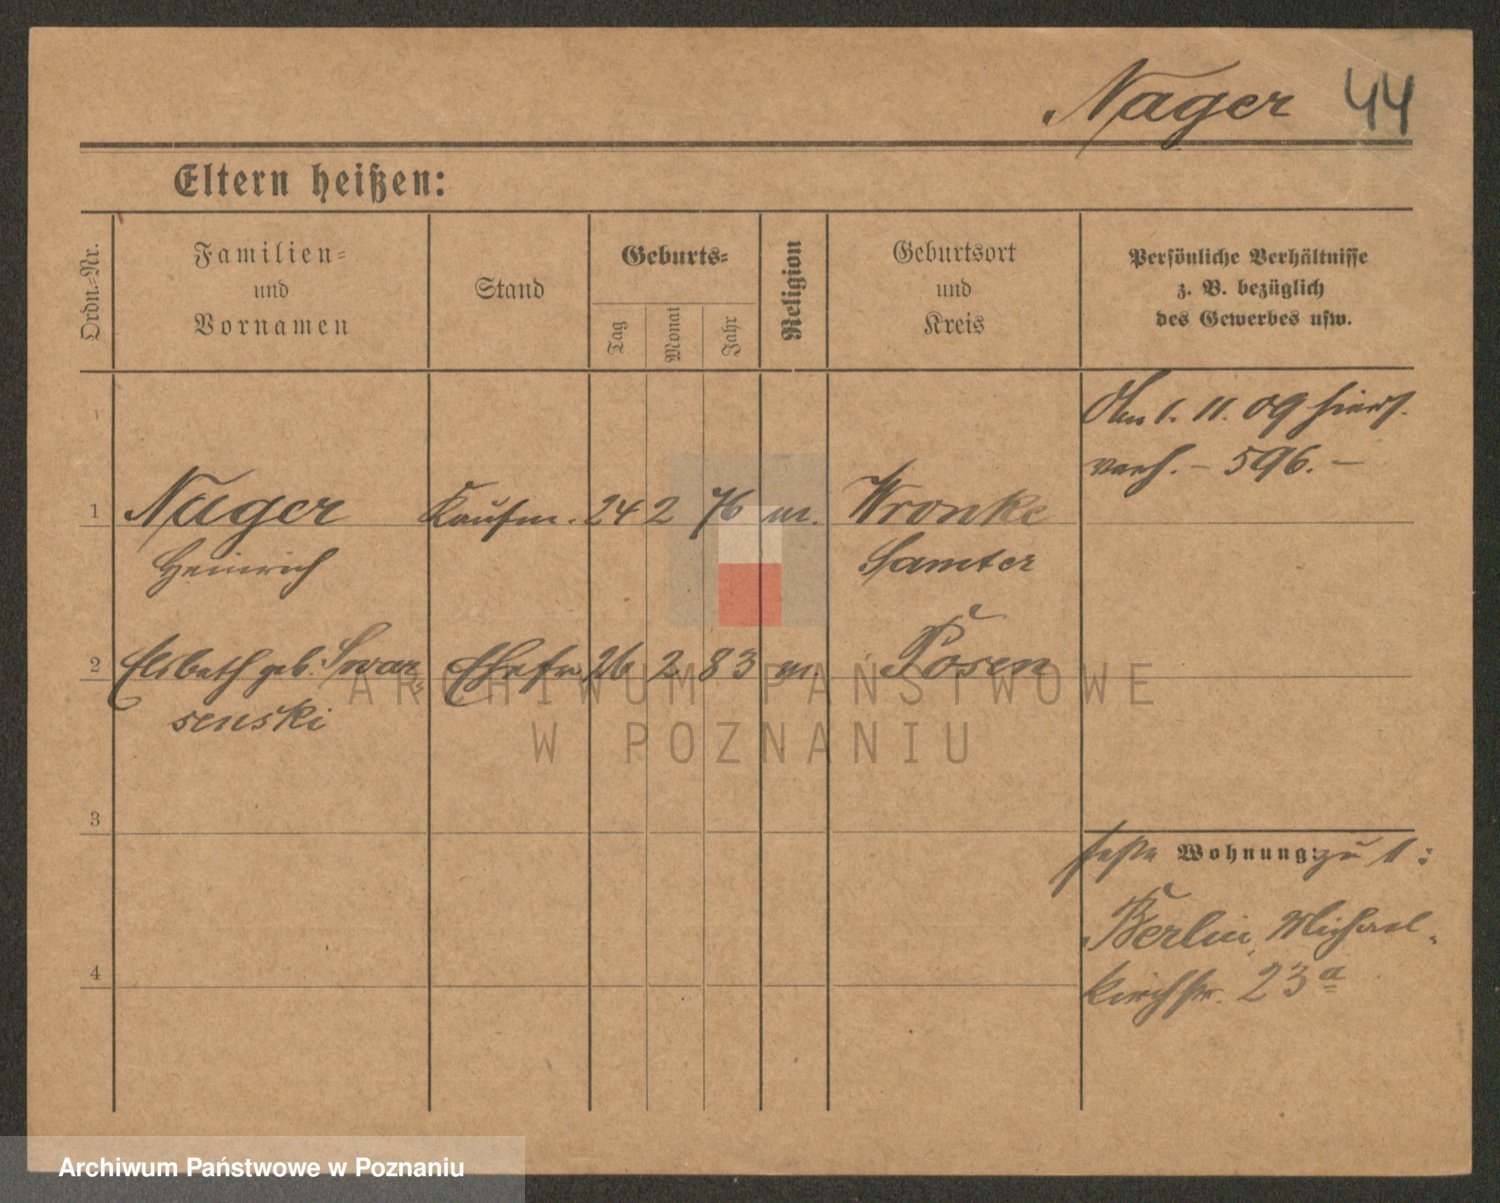 Nager 44
Eltern heißen:
Ordn.-Nr.
Familien-
und
Vornamen
Stand
Geburts-
Tag
Monat
Jahr
Religion
Geburtsort
und
Kreis
Persönliche Verhältnisse
z. B. bezüglich
des Gewerbes usw.
Am 1. 11. 09 hiers.
verh. – 596. –
1 Nager Kaufm. 24 2 76 m. Wronke
Heinrich Samter
2 Elsbeth geb. Swar= Ehefr. 26 2 83 m. Posen
senski
3
feste Wohnung: zu 1:
Berlin, Michael-
4
kirchstr. 23a
ARCHIWUM PAŃSTWOWE
W POZNANIU
Archiwum Państwowe w Poznaniu